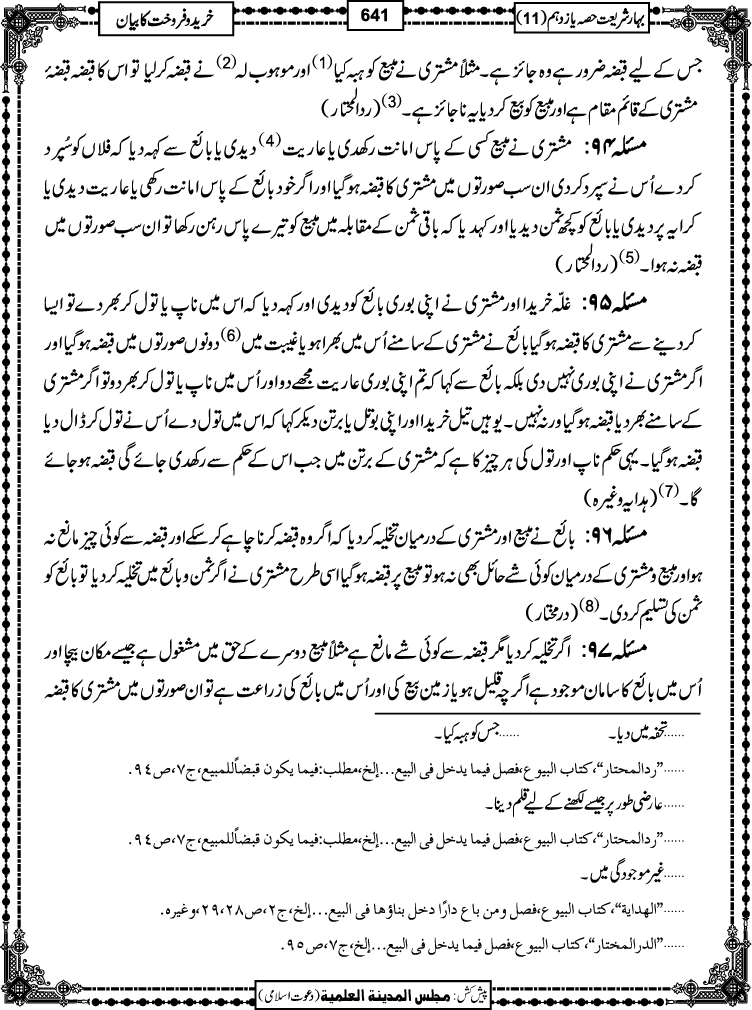 بہار شریعت حصہ یازدہم (11)
641
خرید و فروخت کا بیان
جس کے لیے قبضہ ضرور ہے وہ جائز ہے۔ مثلاً مشتری نے مبیع کو ہبہ کیا(1) اور موہوب لہ(2) نے قبضہ کر لیا تو اس کا قبضہ قبضۂ
مشتری کے قائم مقام ہے اور مبیع کو بیع کر دیا یہ ناجائز ہے۔(3) (ردالمحتار)
مسئلہ ۹۴: مشتری نے مبیع کسی کے پاس امانت رکھدی یا عاریت(4) دیدی یا بائع سے کہہ دیا کہ فلاں کو سُپرد
کر دے اُس نے سپرد کر دی ان سب صورتوں میں مشتری کا قبضہ ہو گیا اور اگر خود بائع کے پاس امانت رکھی یا عاریت دیدی یا
کرایہ پر دیدی یا بائع کو کچھ ثمن دیدیا اور کہدیا کہ باقی ثمن کے مقابلہ میں مبیع کو تیرے پاس رہن رکھا تو ان سب صورتوں میں
قبضہ نہ ہوا۔(5) (ردالمحتار)
مسئلہ ۹۵: غلّہ خریدا اور مشتری نے اپنی بوری بائع کو دیدی اور کہہ دیا کہ اس میں ناپ یا تول کر بھر دے تو ایسا
کر دینے سے مشتری کا قبضہ ہو گیا بائع نے مشتری کے سامنے اُس میں بھرا ہو یا غیبت میں(6) دونوں صورتوں میں قبضہ ہو گیا اور
اگر مشتری نے اپنی بوری نہیں دی بلکہ بائع سے کہا کہ تم اپنی بوری عاریت مجھے دو اور اُس میں ناپ یا تول کر بھر دو تو اگر مشتری
کے سامنے بھر دیا قبضہ ہو گیا ورنہ نہیں۔ یوہیں تیل خریدا اور اپنی بوتل یا برتن دیکر کہا کہ اس میں تول دے اُس نے تول کر ڈال دیا
قبضہ ہو گیا۔ یہی حکم ناپ اور تول کی ہر چیز کا ہے کہ مشتری کے برتن میں جب اس کے حکم سے رکھدی جائے گی قبضہ ہو جائے
گا۔(7) (ہدایہ وغیرہ)
مسئلہ ۹۶: بائع نے مبیع اور مشتری کے درمیان تخلیہ کر دیا کہ اگر وہ قبضہ کرنا چاہے کر سکے اور قبضہ سے کوئی چیز مانع نہ
ہو اور مبیع و مشتری کے درمیان کوئی شے حائل بھی نہ ہو تو مبیع پر قبضہ ہو گیا اسی طرح مشتری نے اگر ثمن و بائع میں تخلیہ کر دیا تو بائع کو
ثمن کی تسلیم کر دی۔(8) (درمختار)
مسئلہ ۹۷: اگر تخلیہ کر دیا مگر قبضہ سے کوئی شے مانع ہے مثلاً مبیع دوسرے کے حق میں مشغول ہے جیسے مکان بیچا اور
اُس میں بائع کا سامان موجود ہے اگرچہ قلیل ہو یا زمین بیع کی اور اُس میں بائع کی زراعت ہے تو ان صورتوں میں مشتری کا قبضہ
......تحفہ میں دیا۔ ......جس کو ہبہ کیا۔
......"ردالمحتار"، کتاب البیوع، فصل فیما یدخل فی البیع...إلخ، مطلب: فیما یکون قبضاً للمبیع، ج٧، ص٩٤.
......عارضی طور پر جیسے لکھنے کے لیے قلم دینا۔
......"ردالمحتار"، کتاب البیوع، فصل فیما یدخل فی البیع...إلخ، مطلب: فیما یکون قبضاً للمبیع، ج٧، ص٩٤.
......غیر موجودگی میں۔
......"الهدایة"، کتاب البیوع، فصل ومن باع دارًا دخل بناؤها فی البیع...إلخ، ج٢، ص٢٨، ٢٩، وغیرہ.
......"الدرالمختار"، کتاب البیوع، فصل فیما یدخل فی البیع...إلخ، ج٧، ص٩٥.
پیش کش: مجلس المدینة العلمیة (دعوت اسلامی)